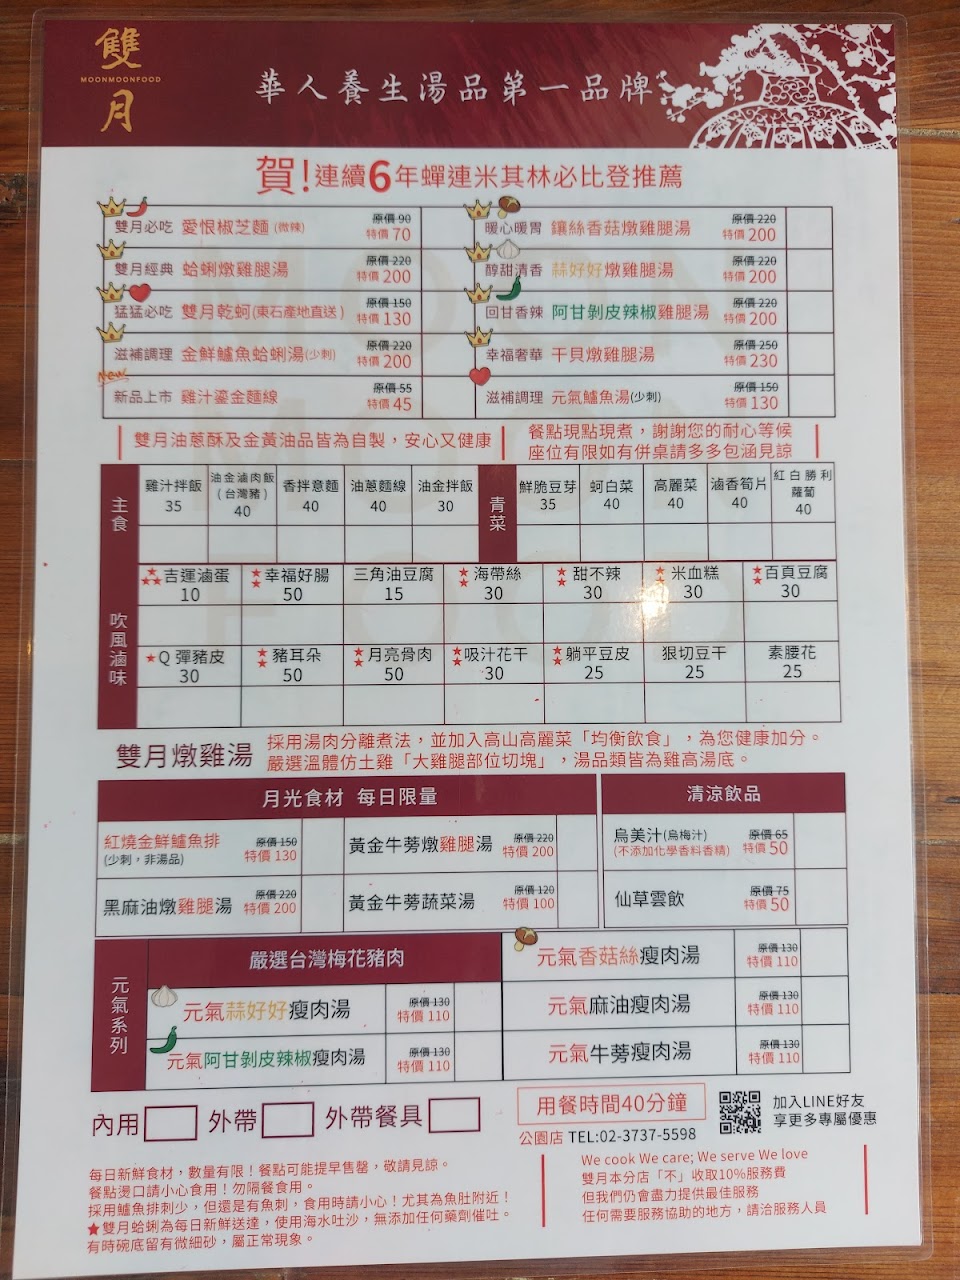 雙月
MOONMOONFOOD
華人養生湯品第一品牌
賀!連續6年蟬連米其林必比登推薦
雙月必吃 愛恨椒芝麵(微辣) 原價 90 特價 70
暖心暖胃 鑲絲香菇燉雞腿湯 原價 220 特價 200
雙月經典 蛤蜊燉雞腿湯 原價 220 特價 200
醇甜清香 蒜好好燉雞腿湯 原價 220 特價 200
猛猛必吃 雙月乾蚵(東石產地直送) 原價 150 特價 130
回甘香辣 阿甘剝皮辣椒雞腿湯 原價 220 特價 200
滋補調理 金鮮鱸魚蛤蜊湯(少刺) 原價 220 特價 200
幸福奢華 干貝燉雞腿湯 原價 250 特價 230
New
新品上市 雞汁鎏金麵線 原價 55 特價 45
滋補調理 元氣鱸魚湯(少刺) 原價 150 特價 130
雙月油蔥酥及金黃油品皆為自製，安心又健康
餐點現點現煮，謝謝您的耐心等候
座位有限如有併桌請多多包涵見諒
主食
雞汁拌飯 35
油金滷肉飯(台灣豬) 40
香拌意麵 40
油蔥麵線 40
油金拌飯 30
青菜
鮮脆豆芽 35
蚵白菜 40
高麗菜 40
滷香筍片 40
紅白勝利蘿蔔 40
吹風滷味
★★★吉運滷蛋 10
★★幸福好腸 50
三角油豆腐 15
★★海帶絲 30
★★甜不辣 30
★★米血糕 30
★★百頁豆腐 30
★Q彈豬皮 30
★★豬耳朵 50
★★月亮骨肉 50
★★吸汁花干 30
★★躺平豆皮 25
狠切豆干 25
素腰花 25
雙月燉雞湯
採用湯肉分離煮法，並加入高山高麗菜「均衡飲食」，為您健康加分。
嚴選溫體仿土雞「大雞腿部位切塊」，湯品類皆為雞高湯底。
月光食材 每日限量
清涼飲品
紅燒金鮮鱸魚排 (少刺，非湯品) 原價 150 特價 130
黃金牛蒡燉雞腿湯 原價 220 特價 200
烏美汁(烏梅汁) (不添加化學香料香精) 原價 65 特價 50
黑麻油燉雞腿湯 原價 220 特價 200
黃金牛蒡蔬菜湯 原價 120 特價 100
仙草雲飲 原價 75 特價 50
元氣系列
嚴選台灣梅花豬肉
元氣香菇絲瘦肉湯 原價 130 特價 110
元氣蒜好好瘦肉湯 原價 130 特價 110
元氣麻油瘦肉湯 原價 130 特價 110
元氣阿甘剝皮辣椒瘦肉湯 原價 130 特價 110
元氣牛蒡瘦肉湯 原價 130 特價 110
內用 外帶 外帶餐具
用餐時間40分鐘
公園店 TEL:02-3737-5598
加入LINE好友
享更多專屬優惠
每日新鮮食材，數量有限！餐點可能提早售罄，敬請見諒。
餐點燙口請小心食用！勿隔餐食用。
採用鱸魚排刺少，但還是有魚刺，食用時請小心！尤其為魚肚附近！
★雙月蛤蜊為每日新鮮送達，使用海水吐沙，無添加任何藥劑催吐。
有時碗底留有微細砂，屬正常現象。
We cook We care; We serve We love
雙月本分店「不」收取10%服務費
但我們仍會盡力提供最佳服務
任何需要服務協助的地方，請洽服務人員